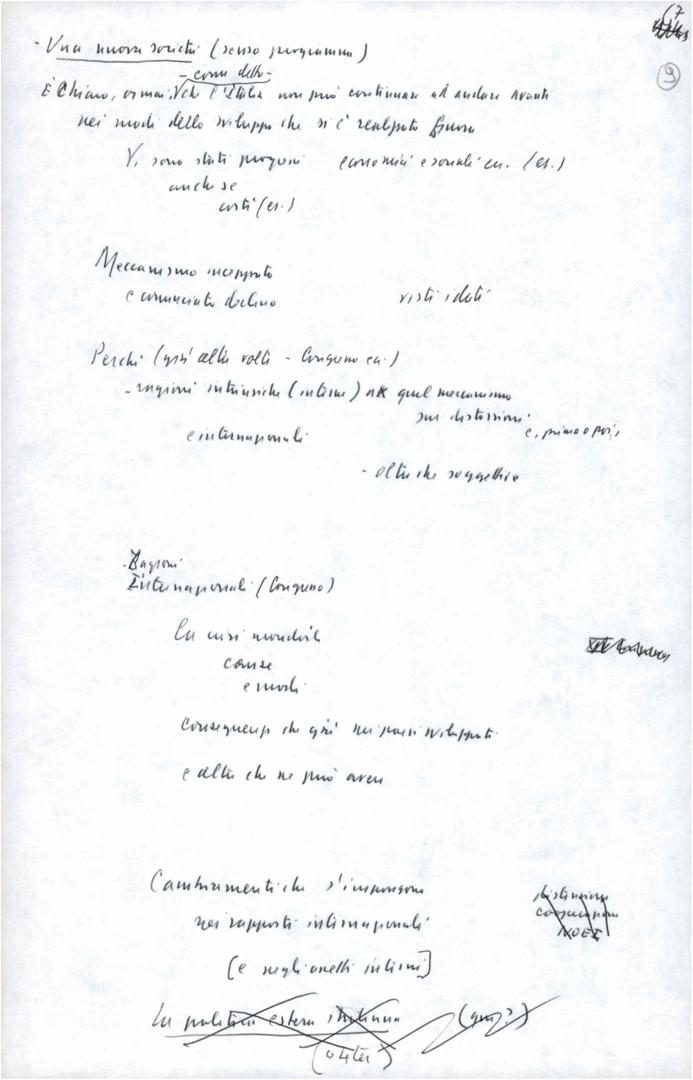 (7
9
- Una nuova società (senso programma)
- come detto -
È Chiaro, ormai, che l'Italia non può continuare ad andare avanti
nei modi dello sviluppo che si è realizzato finora
Vi sono stati progressi economici e sociali ecc. (es.)
anche se
costi (es.)
Meccanismo inceppato
e cominciato declino
visti i dati
Perché (già altre volte - Congresso ecc.)
- ragioni intrinseche (interne) a quel meccanismo
sue distorsioni
e, prima o poi,
e internazionali
- oltre che soggettive
- Ragioni
Internazionali (Congresso)
La crisi mondiale
cause
e modi
Conseguenze che già nei paesi sviluppati
e altre che ne può avere
Cambiamenti che s'impongono
nei rapporti internazionali
[e negli assetti interni]
distensione
cooperazione
NOEI
La politica estera italiana (qui?)
(o 4 ter)